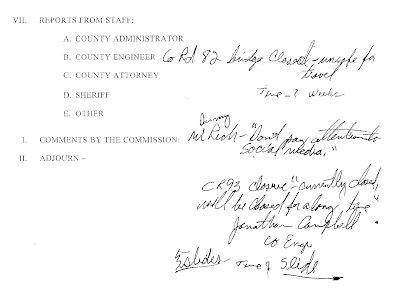 VII. REPORTS FROM STAFF:
A. COUNTY ADMINISTRATOR
B. COUNTY ENGINEER Co Rd 82 bridge Closed - unsafe for
travel
C. COUNTY ATTORNEY
D. SHERIFF
E. OTHER
I. COMMENTS BY THE COMMISSION: "Don't pay attention to
social media."
II. ADJOURN –
CR93 closure "currently closed,
will be closed for a long time"
Jonathan Campbell
Co Engr
slides
Slide